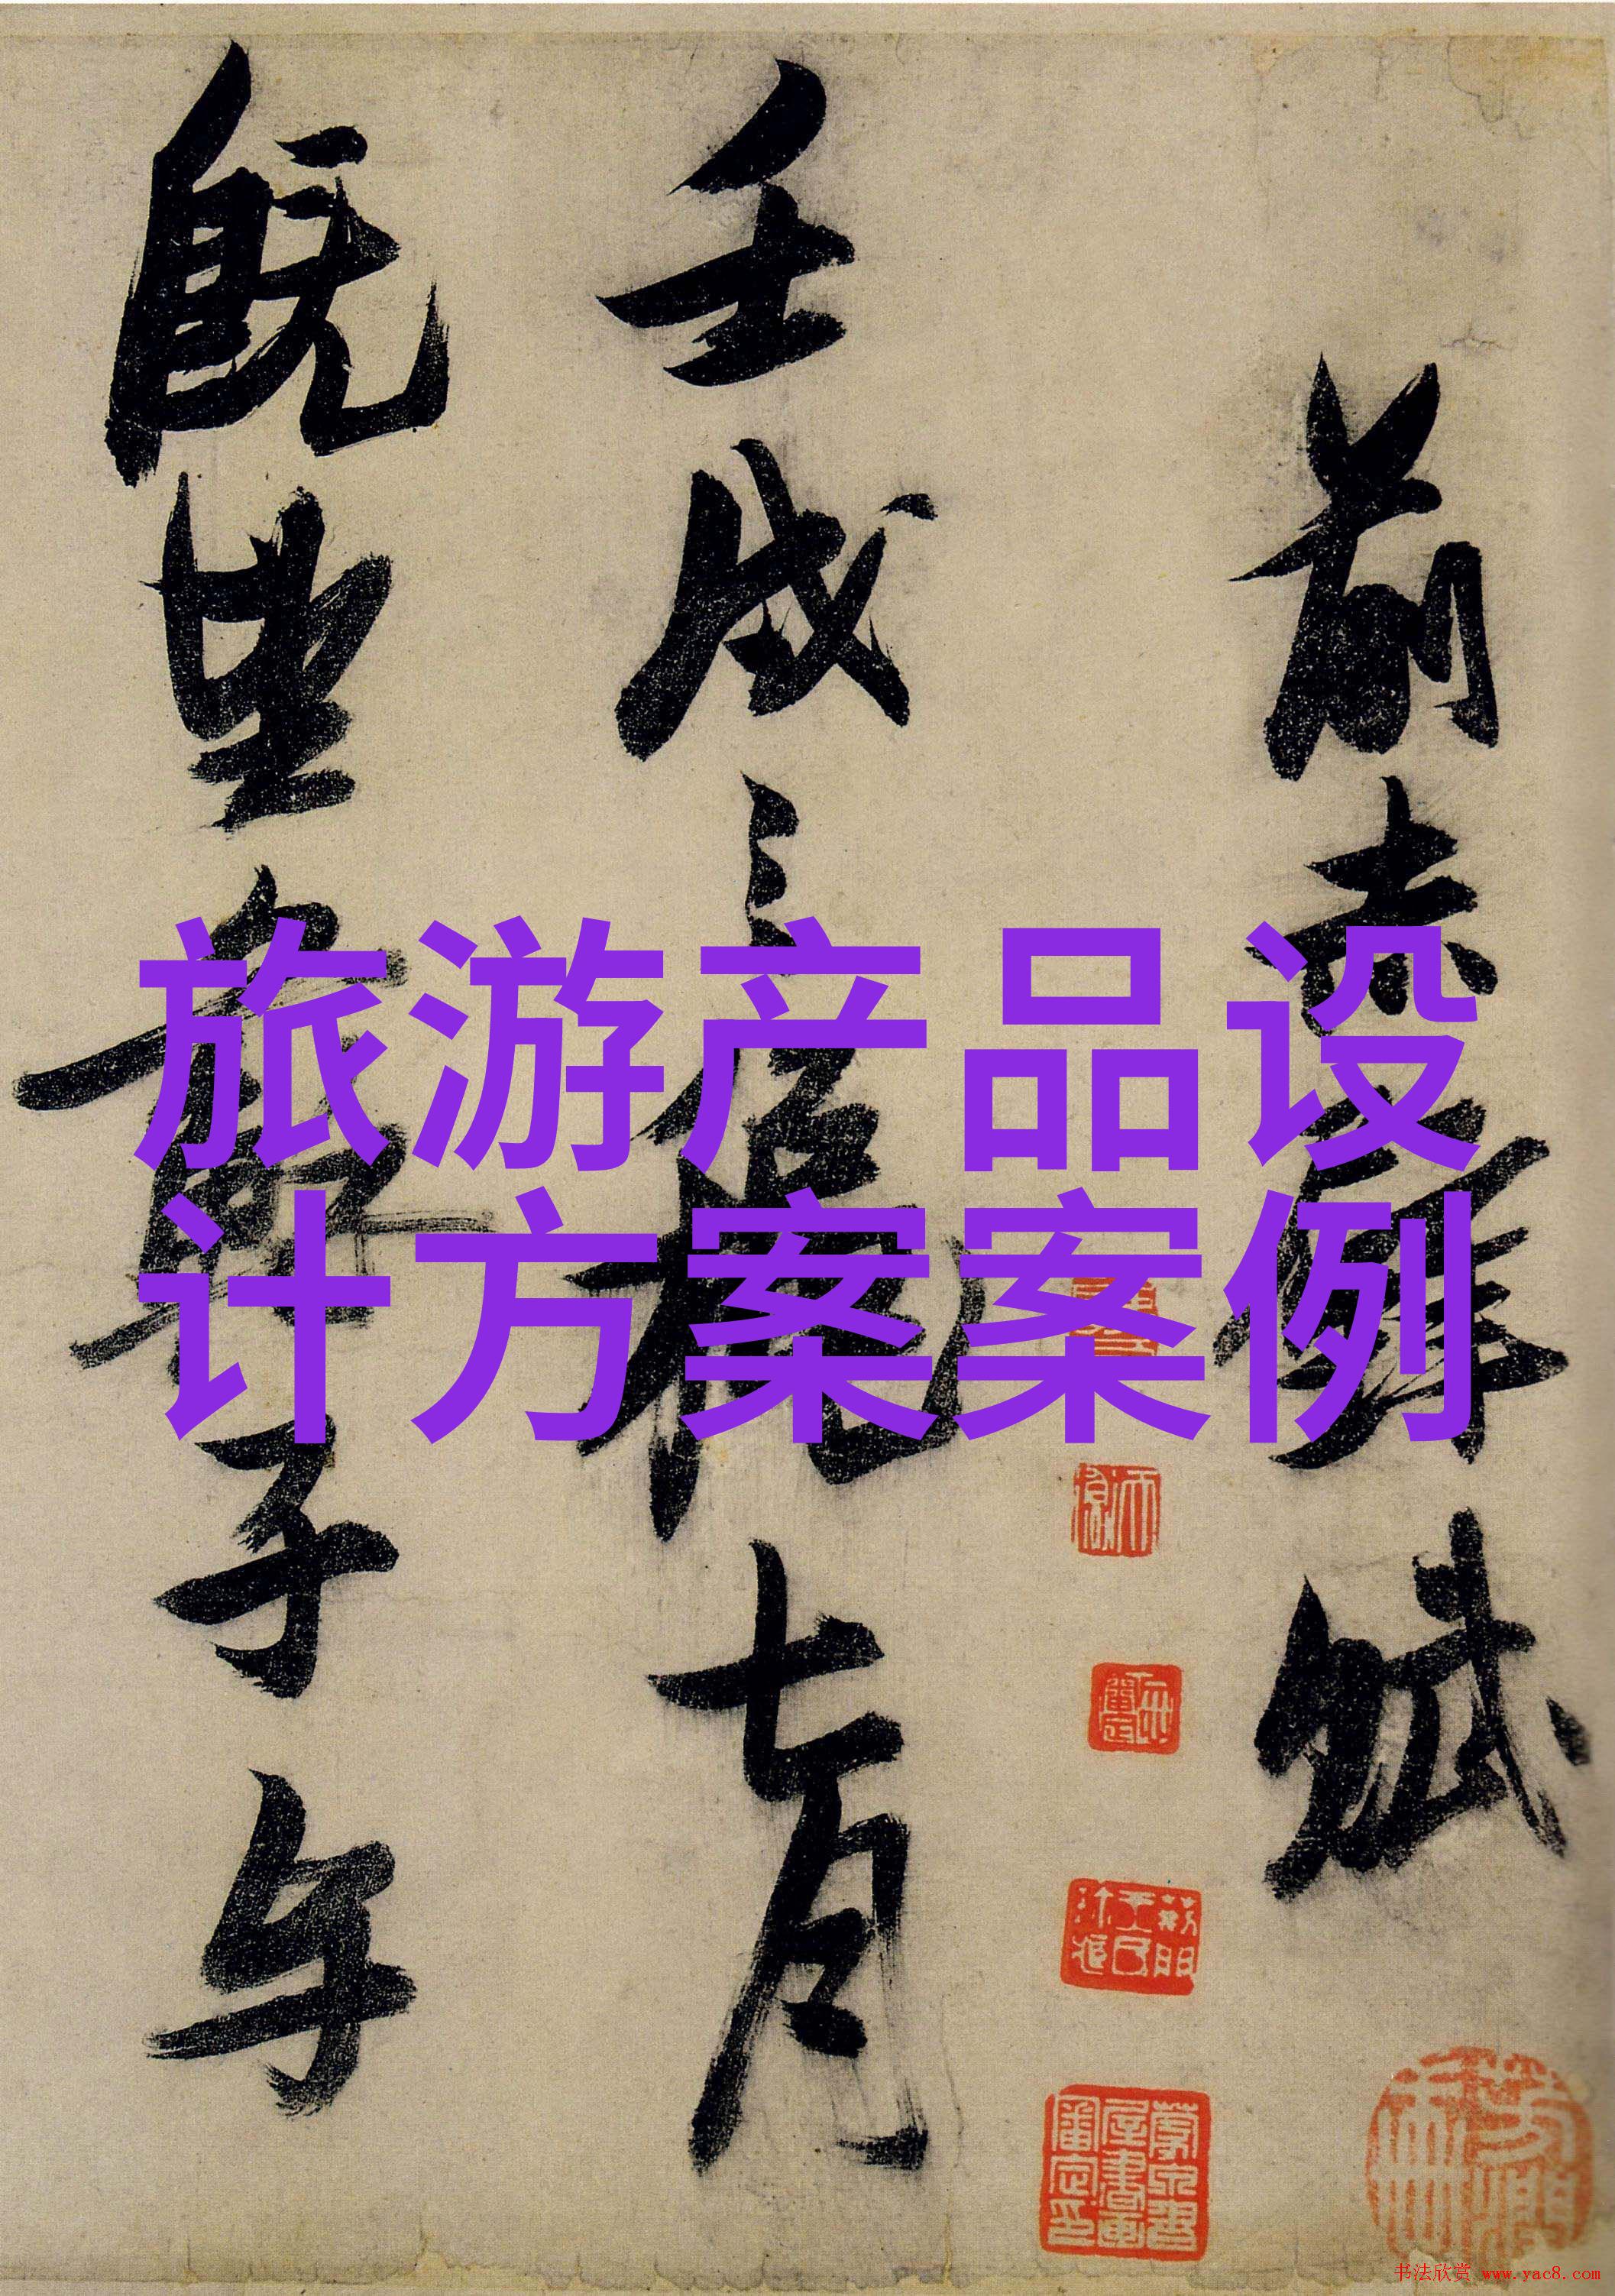 前赤壁賦
壬戌之秋七月
既望蘇子与
旅游产品设
计方案案例
书法欣赏 www.yac8.com